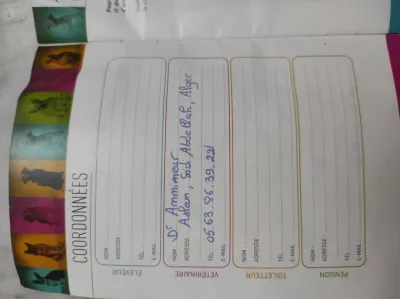 COORDONNÉES
ÉLEVEUR
NOM :
ADRESSE :
TÉL :
E-MAIL :
VÉTÉRINAIRE
NOM : Dr Ammimeur
ADRESSE : Aslan, Sid Abdellah, Alger
TÉL : 05.63.86.39.22
E-MAIL :
TOILETTEUR
NOM :
ADRESSE :
TÉL :
E-MAIL :
PENSION
NOM :
ADRESSE :
TÉL :
E-MAIL :